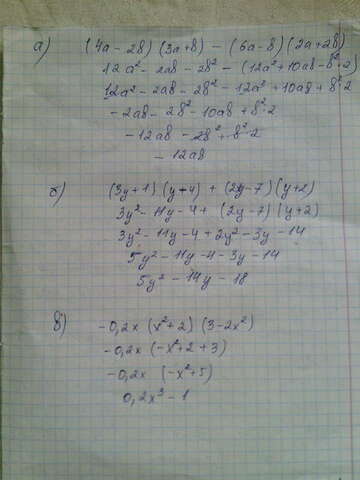 а) (4а - 2в) (3а + в) - (6а - в) (2а + 2в)
12а² - 2ав - 2в² - (12а² + 10ав - в²·2)
12а² - 2ав - 2в² - 12а² + 10ав + в²·2
- 2ав - 2в² - 10ав + в²·2
- 12ав - 2в² + в²·2
- 12ав
б) (3y + 1) (y - 4) + (2y - 7) (y + 2)
3y² - 11y - 4 + (2y - 7) (y + 2)
3y² - 11y - 4 + 2y² - 3y - 14
5y² - 11y - 4 - 3y - 14
5y² - 14y - 18
в) - 0,2x (x² + 2) (3 - 2x²)
- 0,2x (-x² + 2 + 3)
- 0,2x (-x² + 5)
0,2x³ - 1